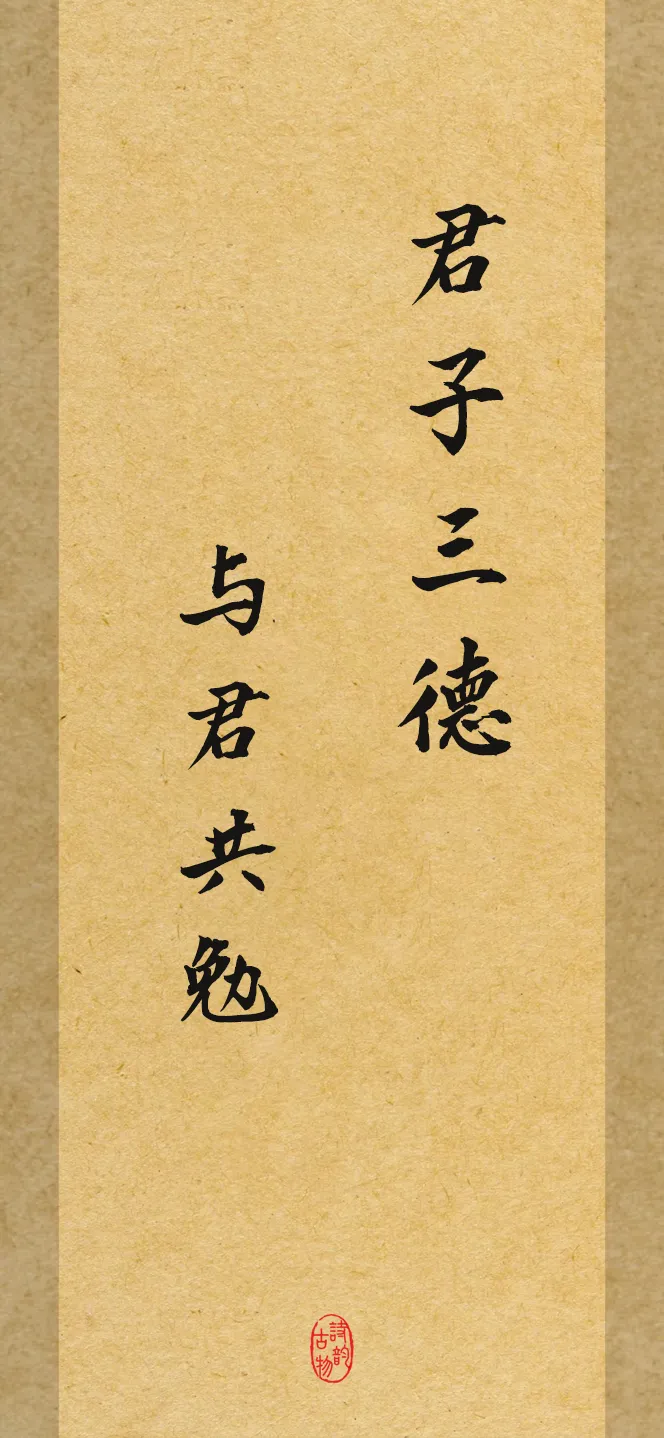 君子三德
与君共勉
詩韵
古物